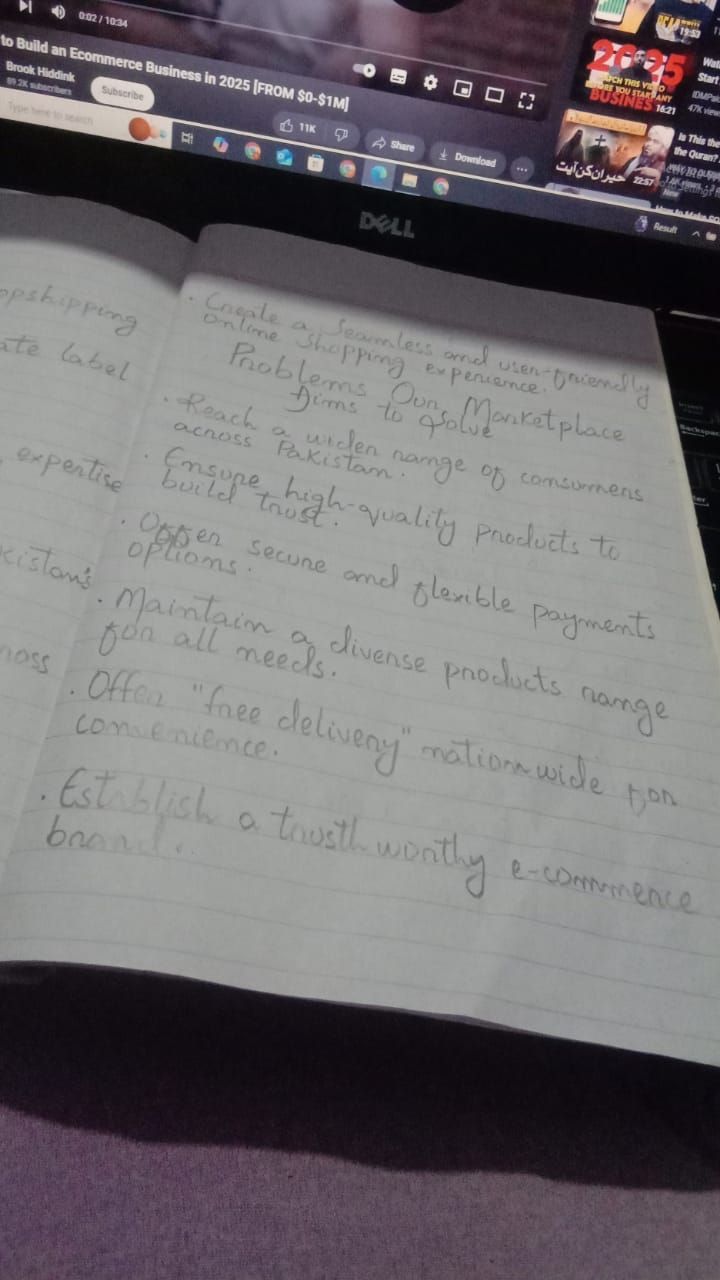 0:02 / 10:34
to Build an Ecommerce Business in 2025 [FROM $0-$1M]
Brook Hiddink
89.2K subscribers
Subscribe
11K
Share
Download
Type here to search
19:53
2025
WATCH THIS VIDEO
BEFORE YOU START ANY
BUSINES
16:21
Wat
Start
47K view
حیران کن آیت
22:57
Is This the
the Quran?
New
Result
DELL
opshipping
ate label
expertise
kistan's
ross
. Create a seamless and user-friendly
online shopping experience.
Problems Our Marketplace
Aims to Solve
. Reach a wider range of consumers
across Pakistan.
. Ensure high-quality products to
build trust.
. Offer secure and flexible payments
options.
. Maintain a diverse products range
for all needs.
. Offer "free delivery" nationwide for
convenience.
. Establish a trusth worthy e-commerce
brand.
Backspac